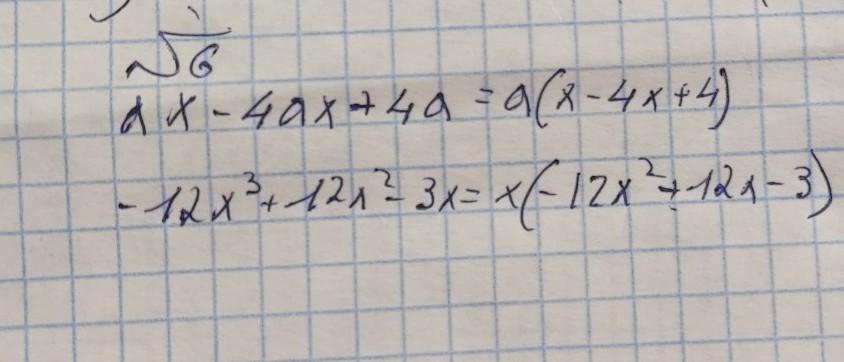 √6
ax - 4ax + 4a = a(x - 4x + 4)
-12x³ + 12x² - 3x = x(-12x² + 12x - 3)